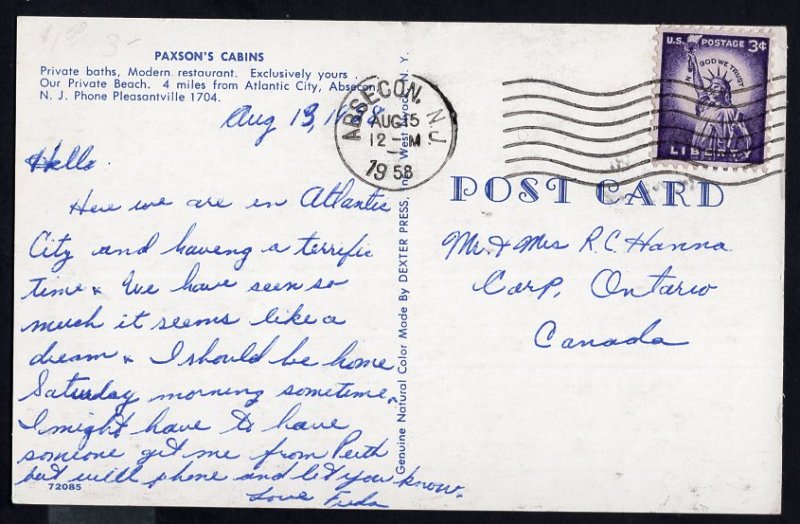 PAXSON'S CABINS
Private baths, Modern restaurant. Exclusively yours
Our Private Beach. 4 miles from Atlantic City, Absecon
N. J. Phone Pleasantville 1704.
Aug 13, 1958
Hello
Here we are in Atlantic
City and haveng a terrific
time & We have seen so
much it seems like a
dream & I should be home
Saturday morning sometime
I might have to have
someone get me from Perth
but will phone and let you know.
Love
72085
Genuine Natural Color Made By DEXTER PRESS, Inc. West Nyack, N. Y.
ABSECON, N.J.
AUG 15
12 - M
1958
U.S. POSTAGE 3¢
IN GOD WE TRUST
LIBERTY
POST CARD
Mr. & Mrs R. C. Hanna
Carp, Ontario
Canada